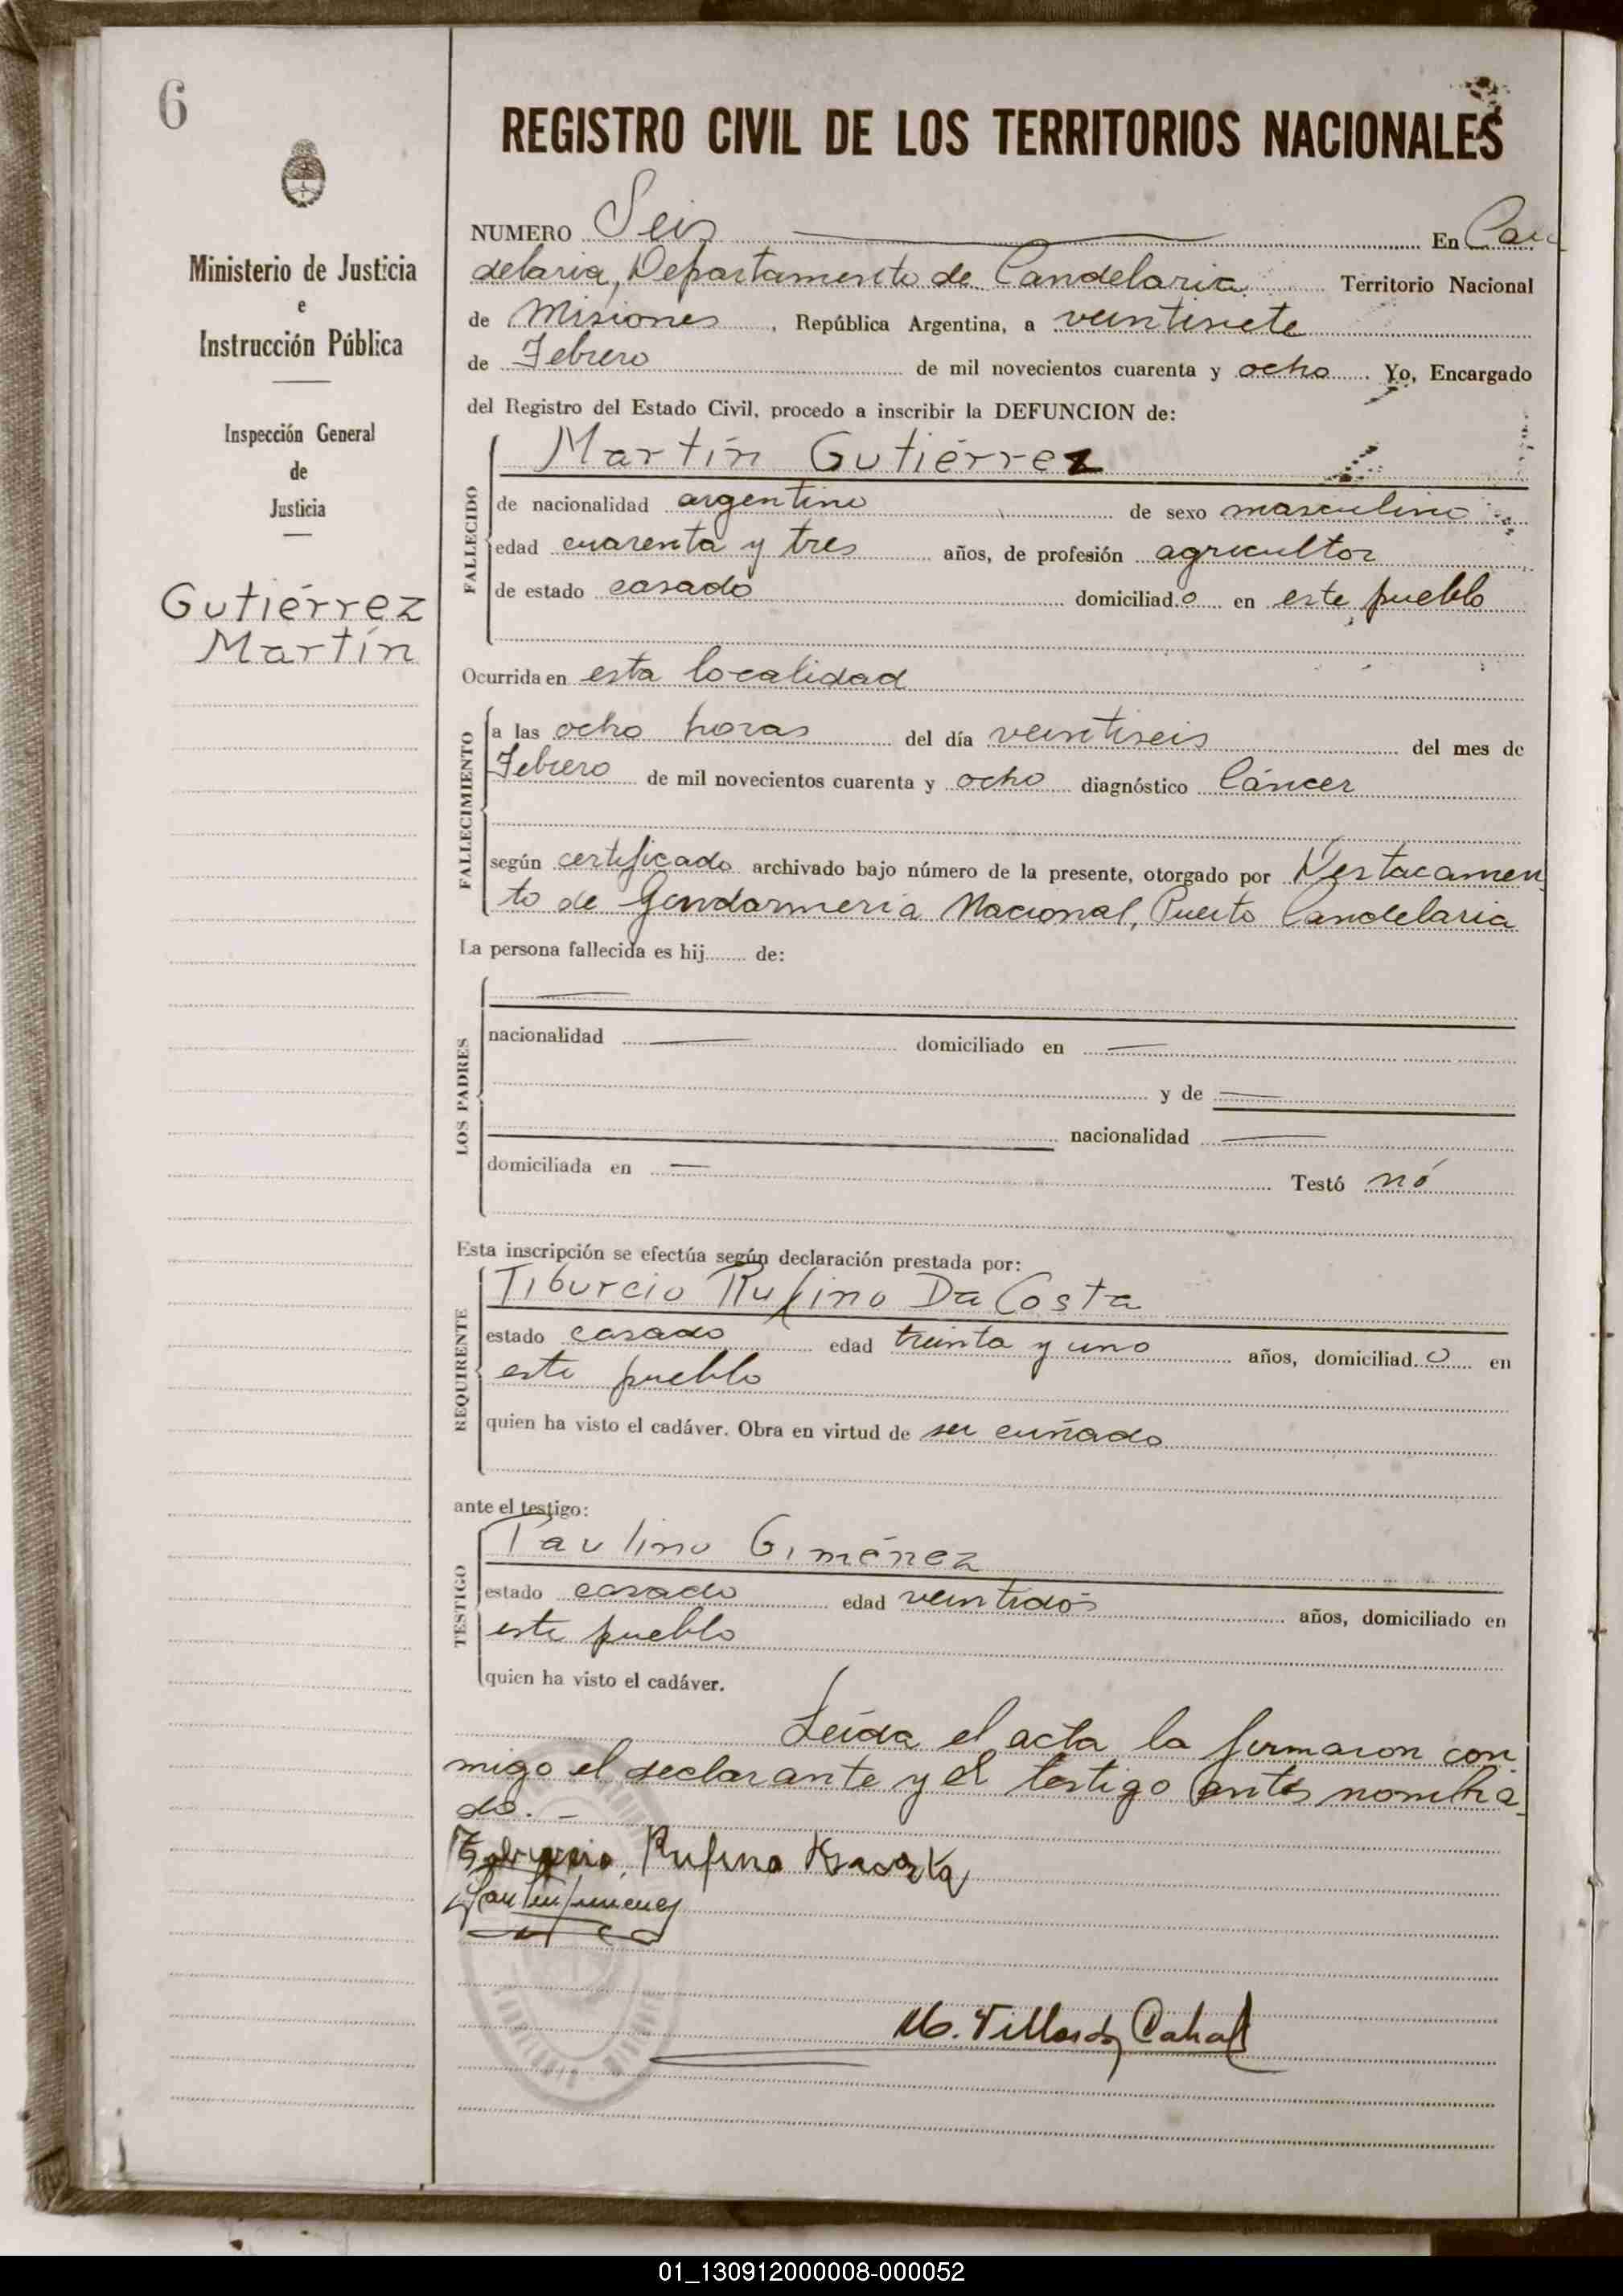 6
Ministerio de Justicia
e
Instrucción Pública
Inspección General
de
Justicia
Gutiérrez
Martín
REGISTRO CIVIL DE LOS TERRITORIOS NACIONALES
NUMERO Seis En Can
delaria, Departamento de Candelaria Territorio Nacional
de Misiones, República Argentina, a veintisiete
de Febrero de mil novecientos cuarenta y ocho. Yo, Encargado
del Registro del Estado Civil, procedo a inscribir la DEFUNCION de:
Martín Gutiérrez
FALLECIDO
de nacionalidad argentino de sexo masculino
edad cuarenta y tres años, de profesión agricultor
de estado casado domiciliado en este pueblo
Ocurrida en esta localidad
FALLECIMIENTO
a las ocho horas del día veintiseis del mes de
Febrero de mil novecientos cuarenta y ocho diagnóstico Cáncer
según certificado archivado bajo número de la presente, otorgado por Destacamen
to de Gendarmeria Nacional, Puerto Candelaria
La persona fallecida es hij........ de:
LOS PADRES
nacionalidad domiciliado en
y de
nacionalidad
domiciliada en Testó nó
Esta inscripción se efectúa según declaración prestada por:
Tiburcio Rufino Da Costa
REQUIRENTE
estado casado edad treinta y uno años, domiciliado en
este pueblo
quien ha visto el cadáver. Obra en virtud de ser cuñado
ante el testigo:
Paulino Giménez
TESTIGO
estado casado edad veintidós años, domiciliado en
este pueblo
quien ha visto el cadáver.
Leída el acta la firmaron con
migo el declarante y el testigo antes nombra
do. -
Rufino
M. Cabral
01_130912000008-000052